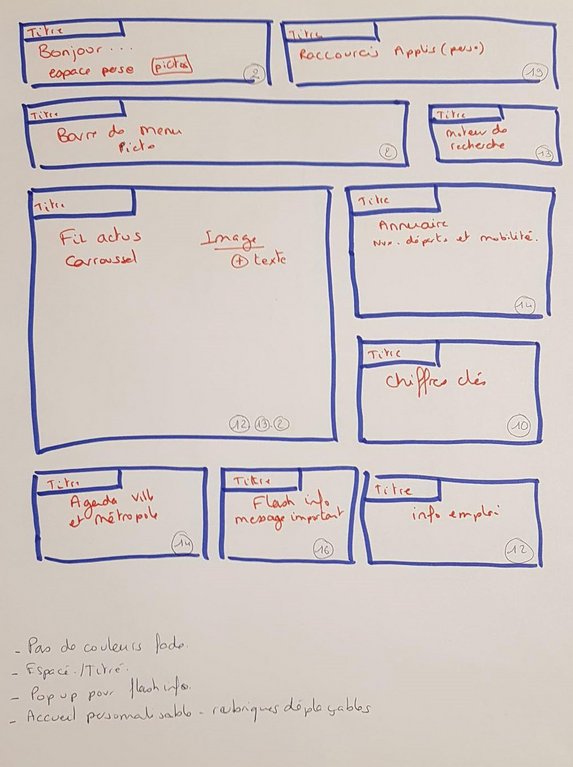 Titre
Bonjour ...
espace perso pictos
2
Titre
Raccourcis Applis (perso)
13
Titre
Barre de menu
Picto
2
Titre
moteur de
recherche
13
Titre
Fil actus
Carroussel
Image
+ texte
12 13 2
Titre
Annuaire
départs et mobilité.
14
Titre
Chiffres clés
10
Titre
Agenda ville
et métropole
14
Titre
Flash info
message important
16
Titre
info emploi
12
- Pas de couleurs fade.
- Espacé / Titré.
- Pop up pour flash info.
- Accueil personnalisable - rubriques déplaçables